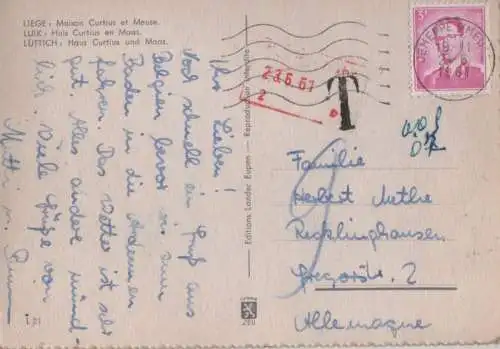 LIEGE: Maison Curtius et Meuse.
LUIK: Huis Curtius en Maas.
LÜTTICH: Haus Curtius und Maas.
Ihr Lieben!
Noch schnell ein Gruß aus
Belgien bevor wir zum
Baden in die Ardennen
fahren. Das Wetter ist sehr
gut. Alles andere münd-
lich. Viele Grüße von
Mutti u.
Editions Lander Eupen — Reproduction interdite
280
T
23.6.61
2
JEMEPPE
Familie
Herbert
Recklinghausen
Gregorstr. 2
Allemagne